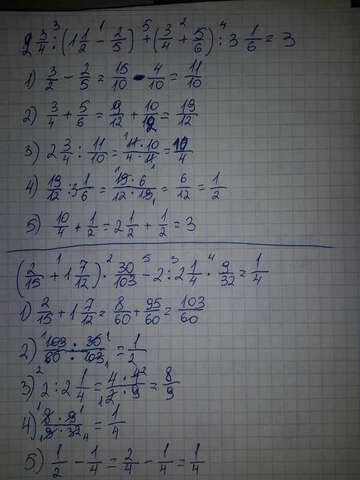 2 3/4 : (1 1/2 - 2/5) + (3/4 + 5/6) : 3 1/6 = 3
1) 3/2 - 2/5 = 15/10 - 4/10 = 11/10
2) 3/4 + 5/6 = 9/12 + 10/12 = 19/12
3) 2 3/4 : 11/10 = 11·10/4·11 = 10/4
4) 19/12 : 3 1/6 = 19·6/12·19 = 6/12 = 1/2
5) 10/4 + 1/2 = 2 1/2 + 1/2 = 3
(2/15 + 1 7/12) · 30/103 - 2 : 2 1/4 · 9/32 = 1/4
1) 2/15 + 1 7/12 = 8/60 + 95/60 = 103/60
2) 103·30/60·103 = 1/2
3) 2 : 2 1/4 = 4·4/2·9 = 8/9
4) 8·9/9·32 = 1/4
5) 1/2 - 1/4 = 2/4 - 1/4 = 1/4